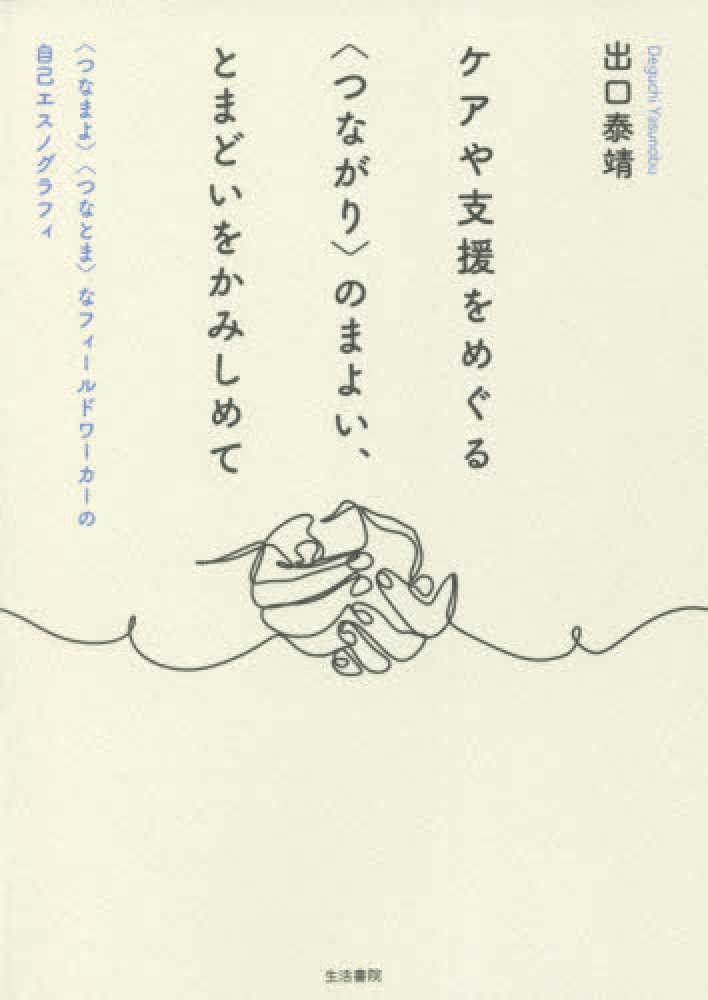 Deguchi Yasunobu
出口泰靖
ケアや支援をめぐる
〈つながり〉のまよい、
とまどいをかみしめて
〈つなまよ〉〈つなとま〉なフィールドワーカーの
自己エスノグラフィ
生活書院